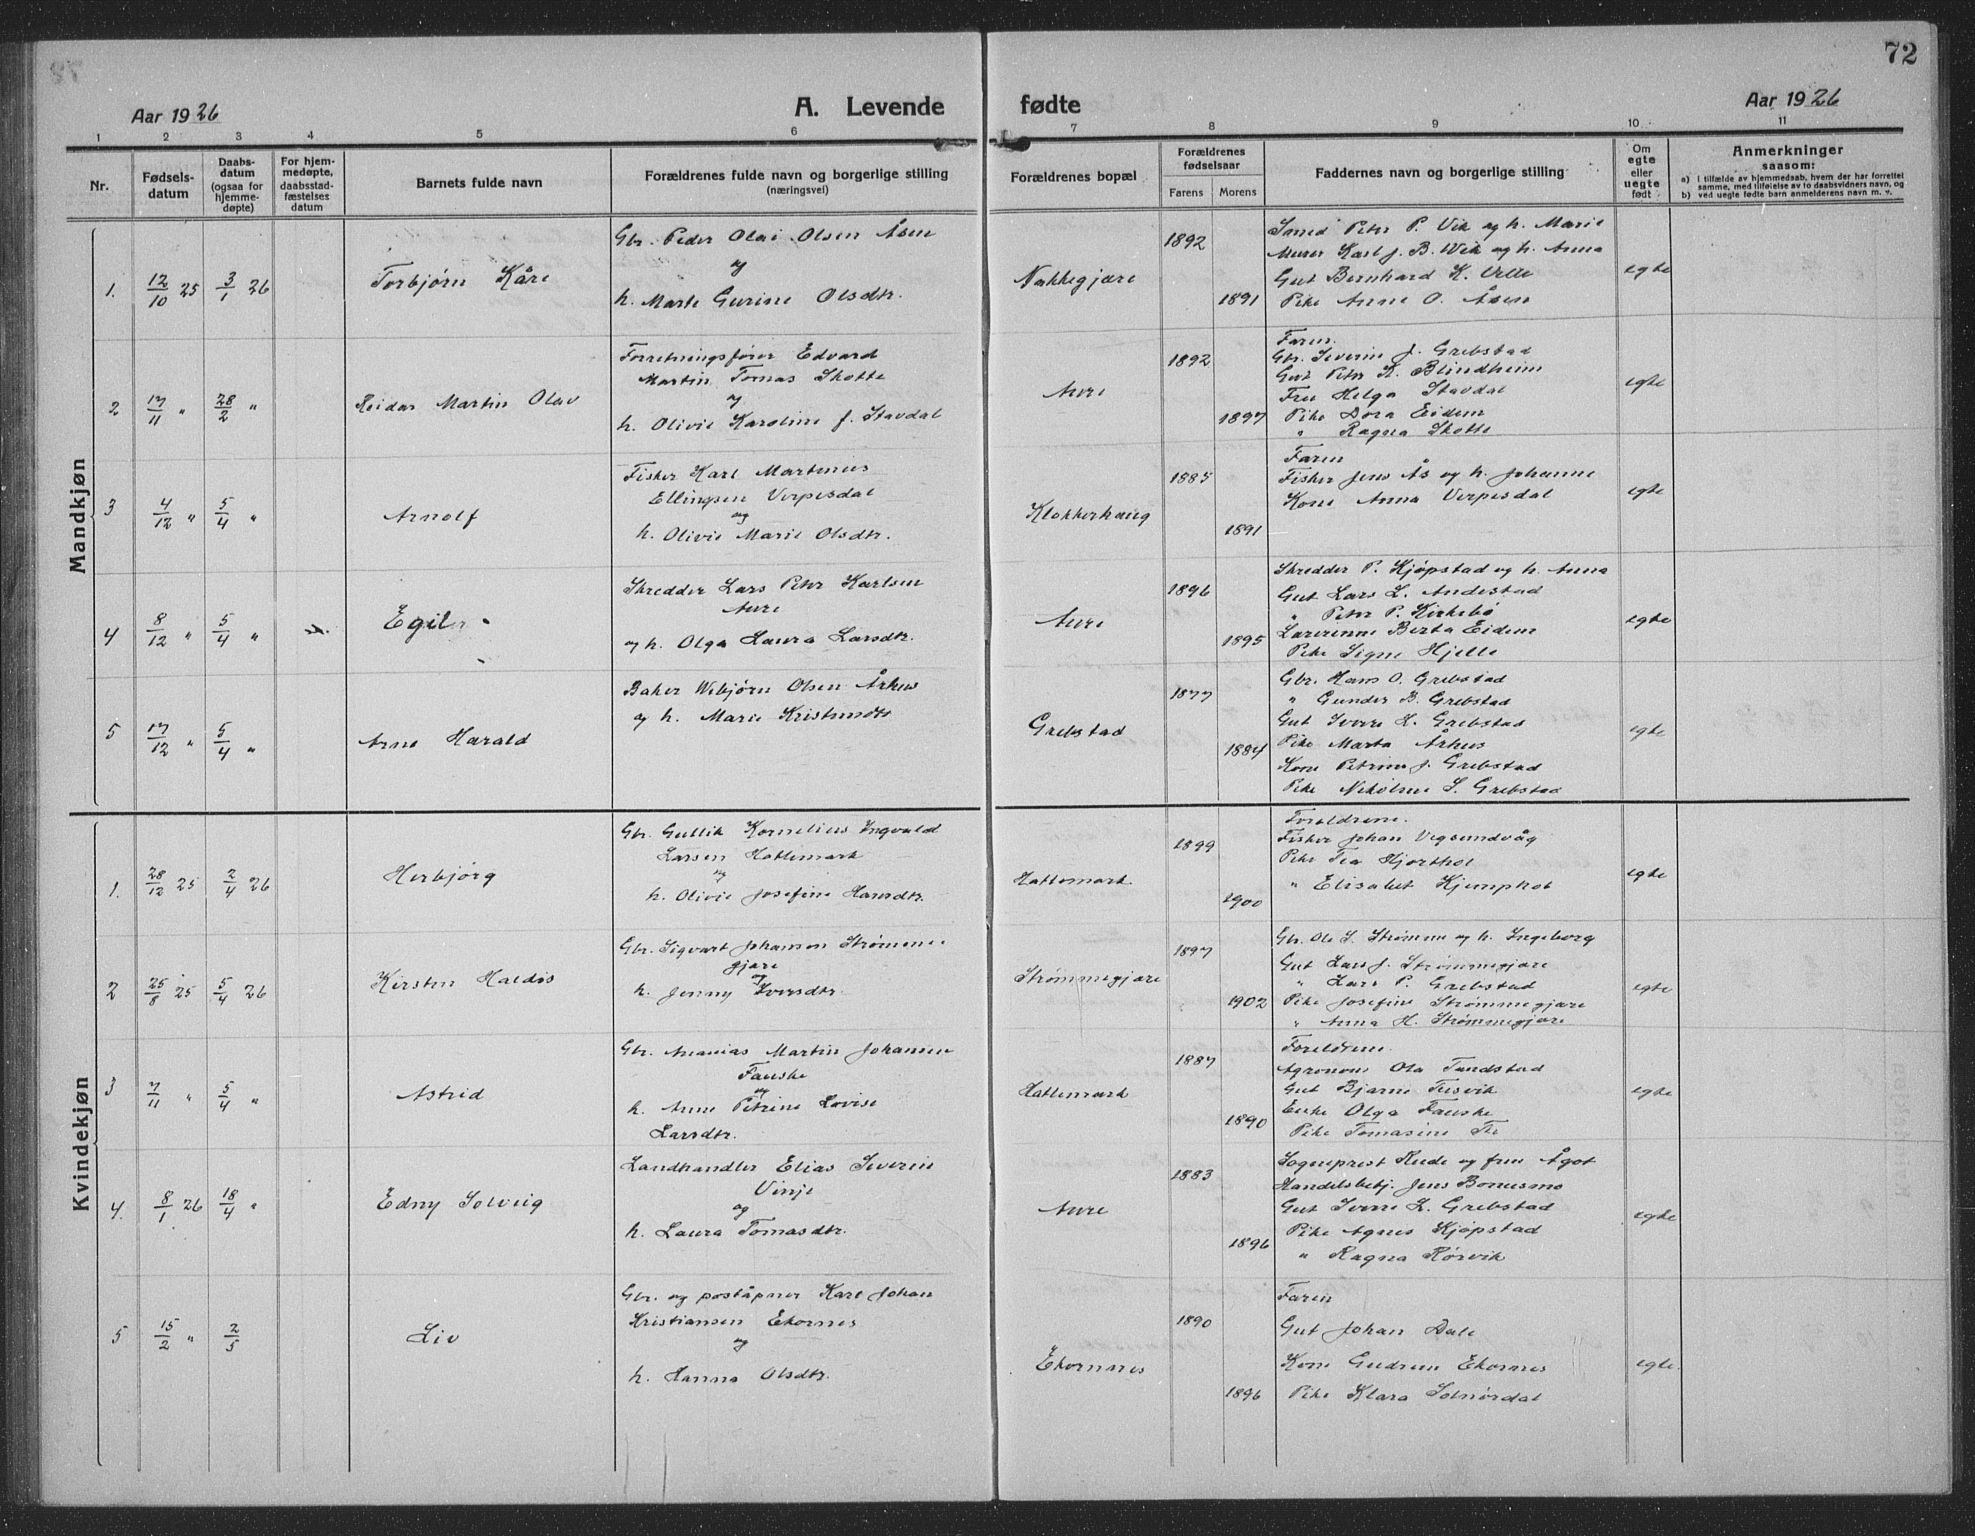 72
Aar 1926
A. Levende fødte
Aar 1926
1 2 3 4 5 6 7 8 9 10 11
Nr.
Fødsels-
datum
Daabs-
datum
(ogsaa for
hjemme-
døpte)
For hjem-
medøpte,
daabsstad-
fæstelses
datum
Barnets fulde navn
Forældrenes fulde navn og borgerlige stilling
(næringsvei)
Forældrenes bopæl
Forældrenes
fødselsaar
Farens Morens
Faddernes navn og borgerlige stilling
Om
egte
eller
uegte
født
Anmerkninger
saasom:
a) i tilfælde av hjemmedaab, hvem der har forrettet
samme, med tilføielse av to daabsvidners navn, og
b) ved uegte fødte barn anmelderens navn m. v.
Mandkjøn
1. 12/10 25 3/1 26
Torbjørn Kåre
Gbr. Peder Olai Olsen Åsen
og
h. Marte Gurine Olsdtr.
Nakkegjære
1892
1891
Smed Peter P. Vik og h. Marie
Murer Karl J. B. Wik og h. Anna
Gut Bernhard K. Velle
Pike Anne O. Åsen
egte
2 17/11 " 28/2 "
Reidar Martin Olav
Forretningsfører Edvard
Martin Tomas Skotte
og
h. Olivie Karoline f. Stavdal
Aure
1892
1897
Faren.
Gbr. Severin J. Grebstad
Gut Peter K. Blindheim
Fru Helga Stavdal
Pike Dora Eidem
" Ragna Skotte
egte
3 4/12 " 5/4 "
Arnolf
Fisker Karl Martinus
Ellingsen Verpesdal
og
h. Olivie Marie Olsdtr.
Klokkerhaug
1885
1891
Faren
Fisker Jens Ås og h. Johanne
Kone Anna Verpesdal
egte
4 8/12 " 5/4 "
Egil
Skredder Lars Peter Karlsen
Aure
og h. Olga Laura Larsdtr.
Aure
1896
1895
Skredder P. Kjøpstad og h. Anna
Gut Lars L. Andestad
" Peter P. Kirkebø
Lærerinne Berta Eidem
Pike Signe Hjelle
egte
5 17/12 " 5/4 "
Arne Harald
Baker Webjørn Olsen Århus
og h. Marie Kristendtr
Grebstad
1877
1884
Gbr. Hans O. Grebstad
" Gunder B. Grebstad
Gut Iverr L. Grebstad
Pike Marta Århus
Kone Petrine J. Grebstad
Pike Nikoline S. Grebstad
egte
Kvindekjøn
1. 28/12 25 2/4 26
Herbjørg
Gbr. Gullik Kornelius Ingvald
Larsen Hattemark
og
h. Olivie Josefine Hansdtr.
Hattemark
1899
1900
Foreldrene.
Fisker Johan Vegsundvåg
Pike Tea Hjorthol
" Elisabet Kjemphol
egte
2 25/8 25 5/4 26
Kirsten Haldis
Gbr. Sigvart Johansen Strømme-
gjære
og
h. Jenny Iversdtr.
Strømmegjære
1897
1902
Gbr. Ole S. Strømme og h. Ingeborg
Gut Lars J. Strømmegjære
" Lars P. Grebstad
Pike Josefine Strømmegjære
" Anna H. Strømmegjære
egte
3 7/11 " 5/4 "
Astrid
Gbr. Ananias Martin Johansen
Fauske
og
h. Anne Petrine Lovise
Larsdtr.
Hattemark
1887
1890
Foreldrene.
Agronom Ola Tandstad
Gut Bjarne Tusvik
Enke Olga Fauske
Pike Tomasine
egte
4. 8/1 26 18/4 "
Edny Solveig
Landhandler Elias Severin
Vinje
og
h. Laura Tomasdtr.
Aure
1883
1896
Sogneprest Rude og fru Ågot
Handelsbetj. Jens Bonesmo
Gut Iverr L. Grebstad
Pike Agnes Kjøpstad
" Ragna Rørvik
egte
5 15/2 " 2/5
Liv
Gbr. og poståpner Karl Johan
Kristiansen Ekornes
og
h. Hanna Olsdtr.
Ekornnes
1890
1896
Faren
Gut Johan Dale
Kone Gudrun Ekornes
Pike Klara Solnørdal
egte.